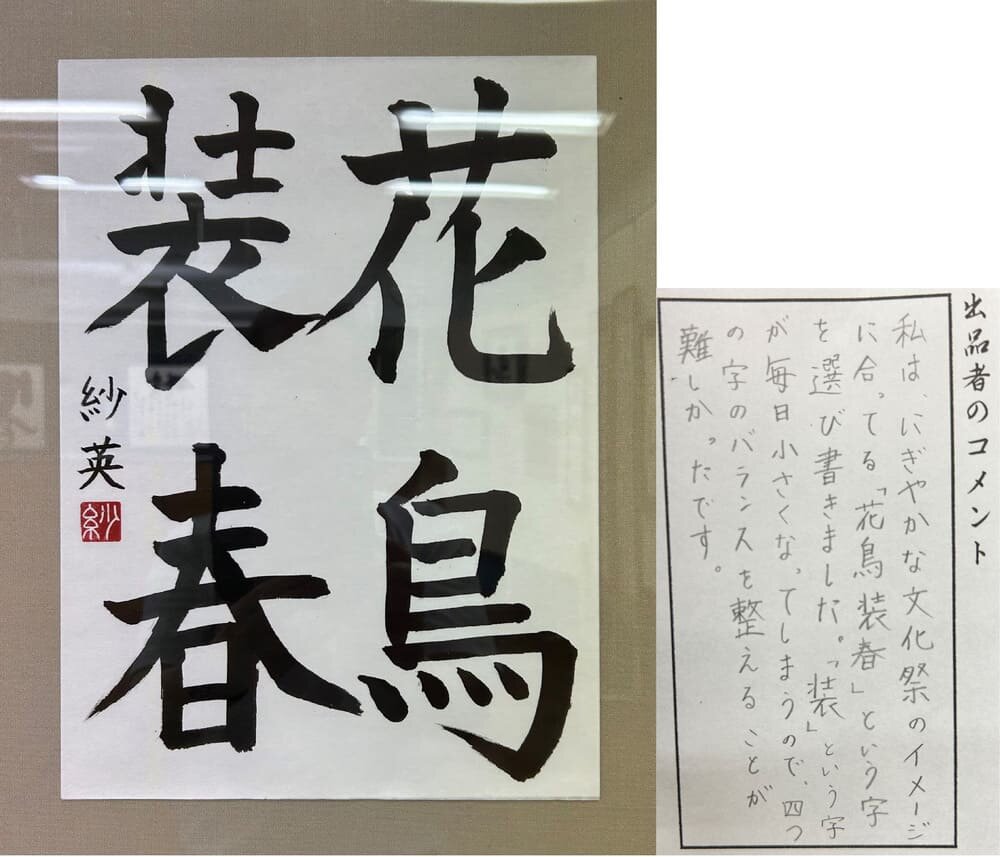 花鳥
装春
紗英
紗
出品者のコメント
私は、にぎやかな文化祭のイメージ
に合ってる「花鳥装春」という字
を選び書きました。「装」という字
が毎日小さくなってしまうので、四つ
の字のバランスを整えることが
難しかったです。